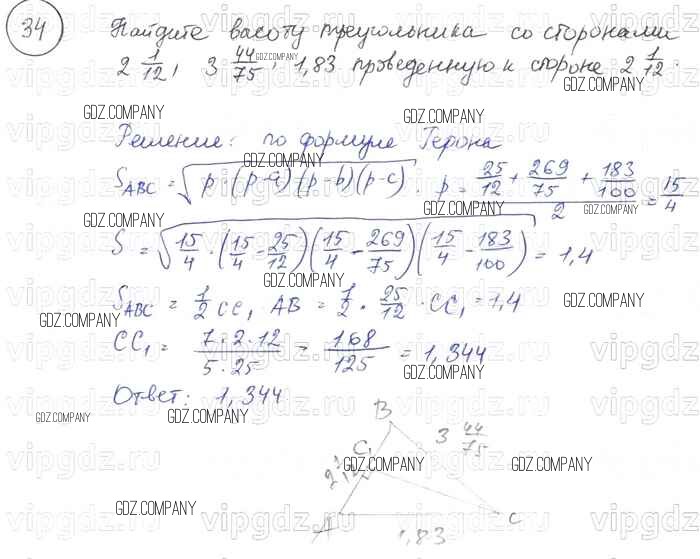 34 Найдите васоту треугольника со сторонами
2 1/12, 3 44/75, 1,83 проведенную к стороне 2 1/12.
GDZ.COMPANY GDZ.COMPANY GDZ.COMPANY
Решение: по формуле Герона
GDZ.COMPANY
S_ABC = √(p·(p-a)(p-b)(p-c)). p = (25/12 + 269/75 + 183/100)/2 = 15/4
GDZ.COMPANY GDZ.COMPANY GDZ.COMPANY
S = √(15/4·(15/4-25/12)(15/4-269/75)(15/4-183/100)) = 1,4
GDZ.COMPANY
S_ABC = 1/2 CC₁ AB = 1/2 · 25/12 · CC₁ = 1,4
GDZ.COMPANY GDZ.COMPANY
CC₁ = (7·2·12)/(5·25) = 168/125 = 1,344
GDZ.COMPANY GDZ.COMPANY
Ответ: 1,344
GDZ.COMPANY GDZ.COMPANY GDZ.COMPANY
B
3 44/75
C₁
2 1/12
GDZ.COMPANY GDZ.COMPANY
GDZ.COMPANY
A C
1,83
vipgdz.ru